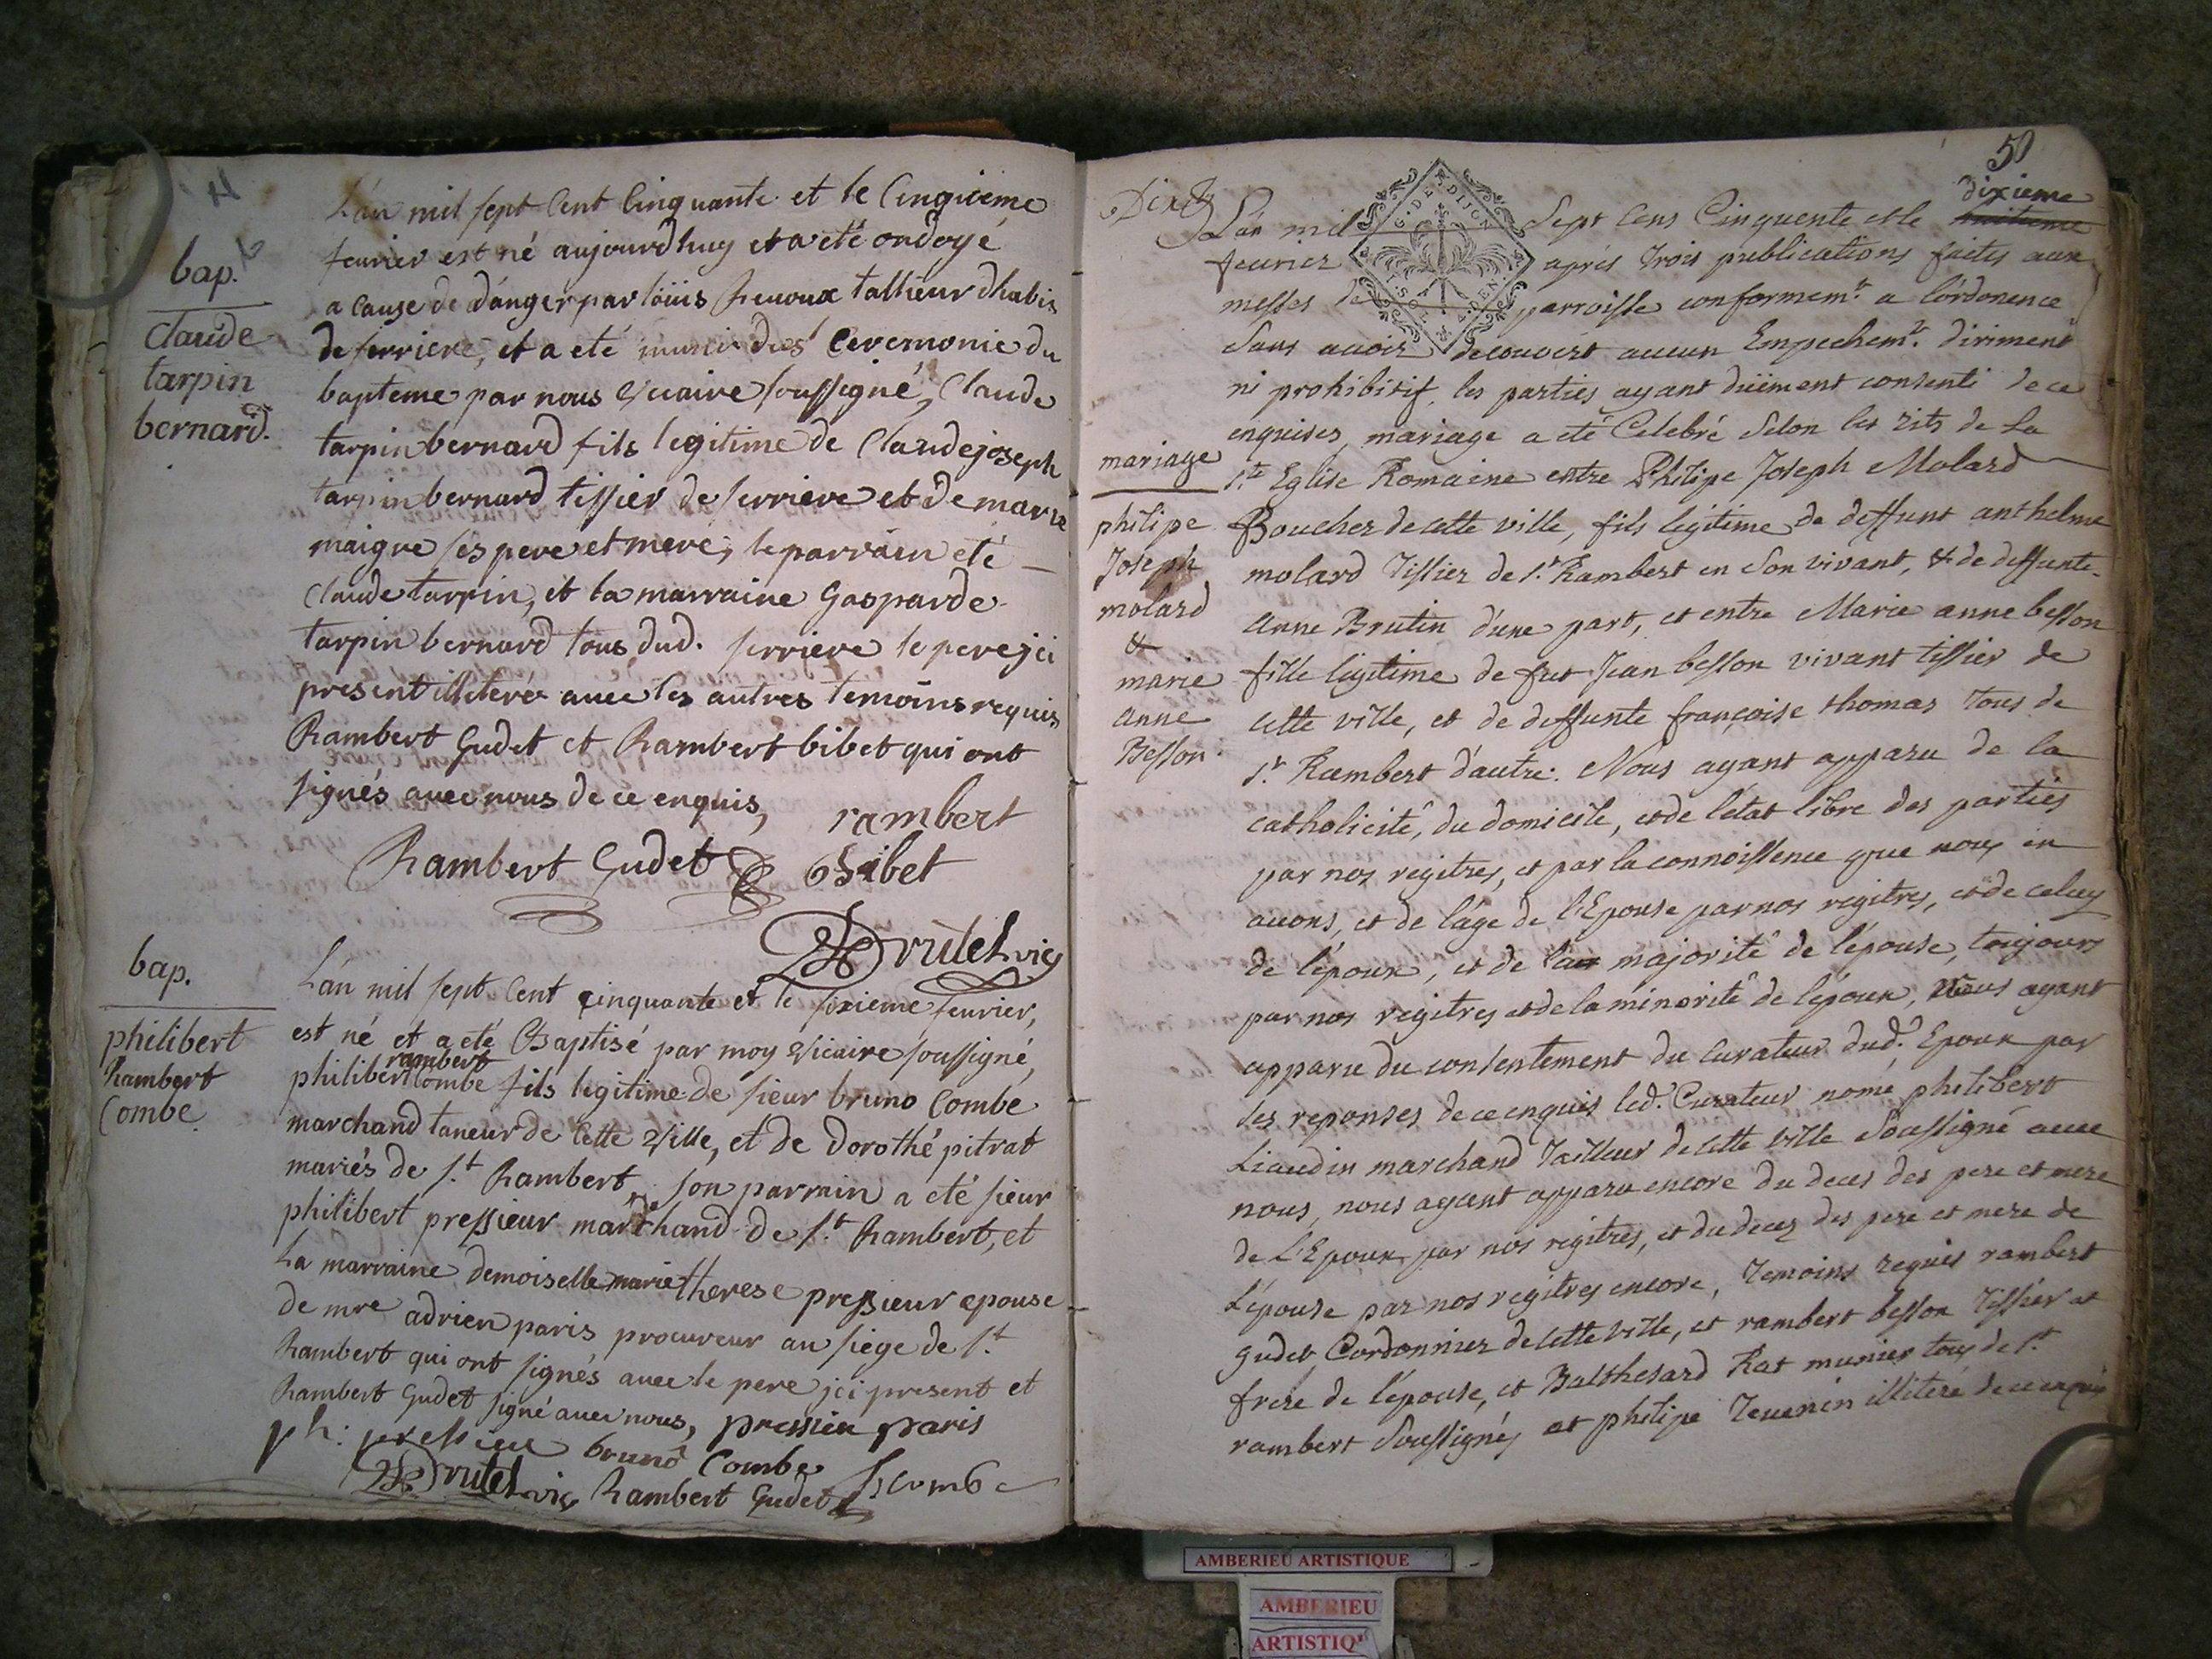 bap.
claude
tarpin
bernard.
L'an mil sept cent cinquante et le cinqieme
feurier est né aujourd'huy et a été ondoyé
a cause de danger par loüis tallieur dhabis
de serriere, et a eté muni des ceremonie du
bapteme par nous vicaire soussigné, Claude
tarpin bernard fils legitime de Claude joseph
tarpin bernard tissier de serriere et de marie
maigre ses pere et mere, le parrain eté
Claude tarpin, et la marraine Gasparde
tarpin bernard tous dud. serriere le pere jci
present illiteré auec les autres temoins requis
Rambert Gudet et Rambert bibet qui ont
signés auec nous de ce enquis,
rambert
Rambert Gudet bibet
Drutel vic
bap.
philibert
Rambert
Combe
L'an mil sept cent cinquante et le sixieme feurier,
est né et a eté Baptisé par moy vicaire soussigné,
rambert
philibert Combe fils legitime de sieur bruno Combe
marchand taneur de cette ville, et de Dorothé pitrat
mariés de St. Rambert, son parrain a eté sieur
philibert pressieur marchand de St. Rambert, et
La marraine demoiselle marie therese pressieur epouse
de mre adrien paris procureur au siege de St.
Rambert qui ont signés auec le pere jci present et
Rambert Gudet signé auec nous, pressieu paris
ph: pressieu bruno Combe
Drutel vic Rambert Gudet
50
dixieme
L'an mil Sept Cens Cinquente et le huitieme
G. DE DIJON
feurier aprés trois publications faites aux
messes de parroisse conformemt. a l'ordonence
Sans auoir découvert aucun Empechemt. diriment
ni prohibitif, les parties ayant düëment consenti de ce
enquises, mariage a eté Celebré Selon les rits de La
mariage
philipe
Joseph
molard
&
marie
anne
Besson.
Ste Eglise Romaine entre Philipe Joseph Molard
Boucher de cette ville, fils legitime de deffunt anthelme
molard Tissier de St. Rambert en Son vivant, & de deffunte
Anne Brutin d'une part, et entre Marie anne besson
fille légitime de fut Jean besson vivant tissier de
cette ville, et de deffunte françoise thomas Tous de
St. Rambert d'autre. Nous ayant apparu de la
catholicité, du domicile, et de l'etat libre des parties
par nos regitres, et par la connoissence que nous en
auons, et de l'age de l'Epouse par nos regitres, et de celuy
de l'epoux, et de la majorité de l'épouse, toujours
par nos regitres et de la minorité de l'époux, Nous ayant
apparu du consentement du Curateur dud. Epoux par
ses reponses de ce enquis led. Curateur nomé philibert
Liaudin marchand Tailleur de cette ville Soussigné auec
nous, nous ayant apparu encore du deces des pere et mere
de L'Epoux par nos regitres, et du deces des pere et mere de
L'épouse par nos regitres encore, Temoins requis rambert
gudet Cordonnier de cette ville, et rambert besson Tissier et
frere de l'épouse, et Balthesard Rat munier tous de St.
rambert Soussignés et philipe Teuenin illiteré de ce enquis
AMBERIEU ARTISTIQUE
AMBERIEU
ARTISTIQ